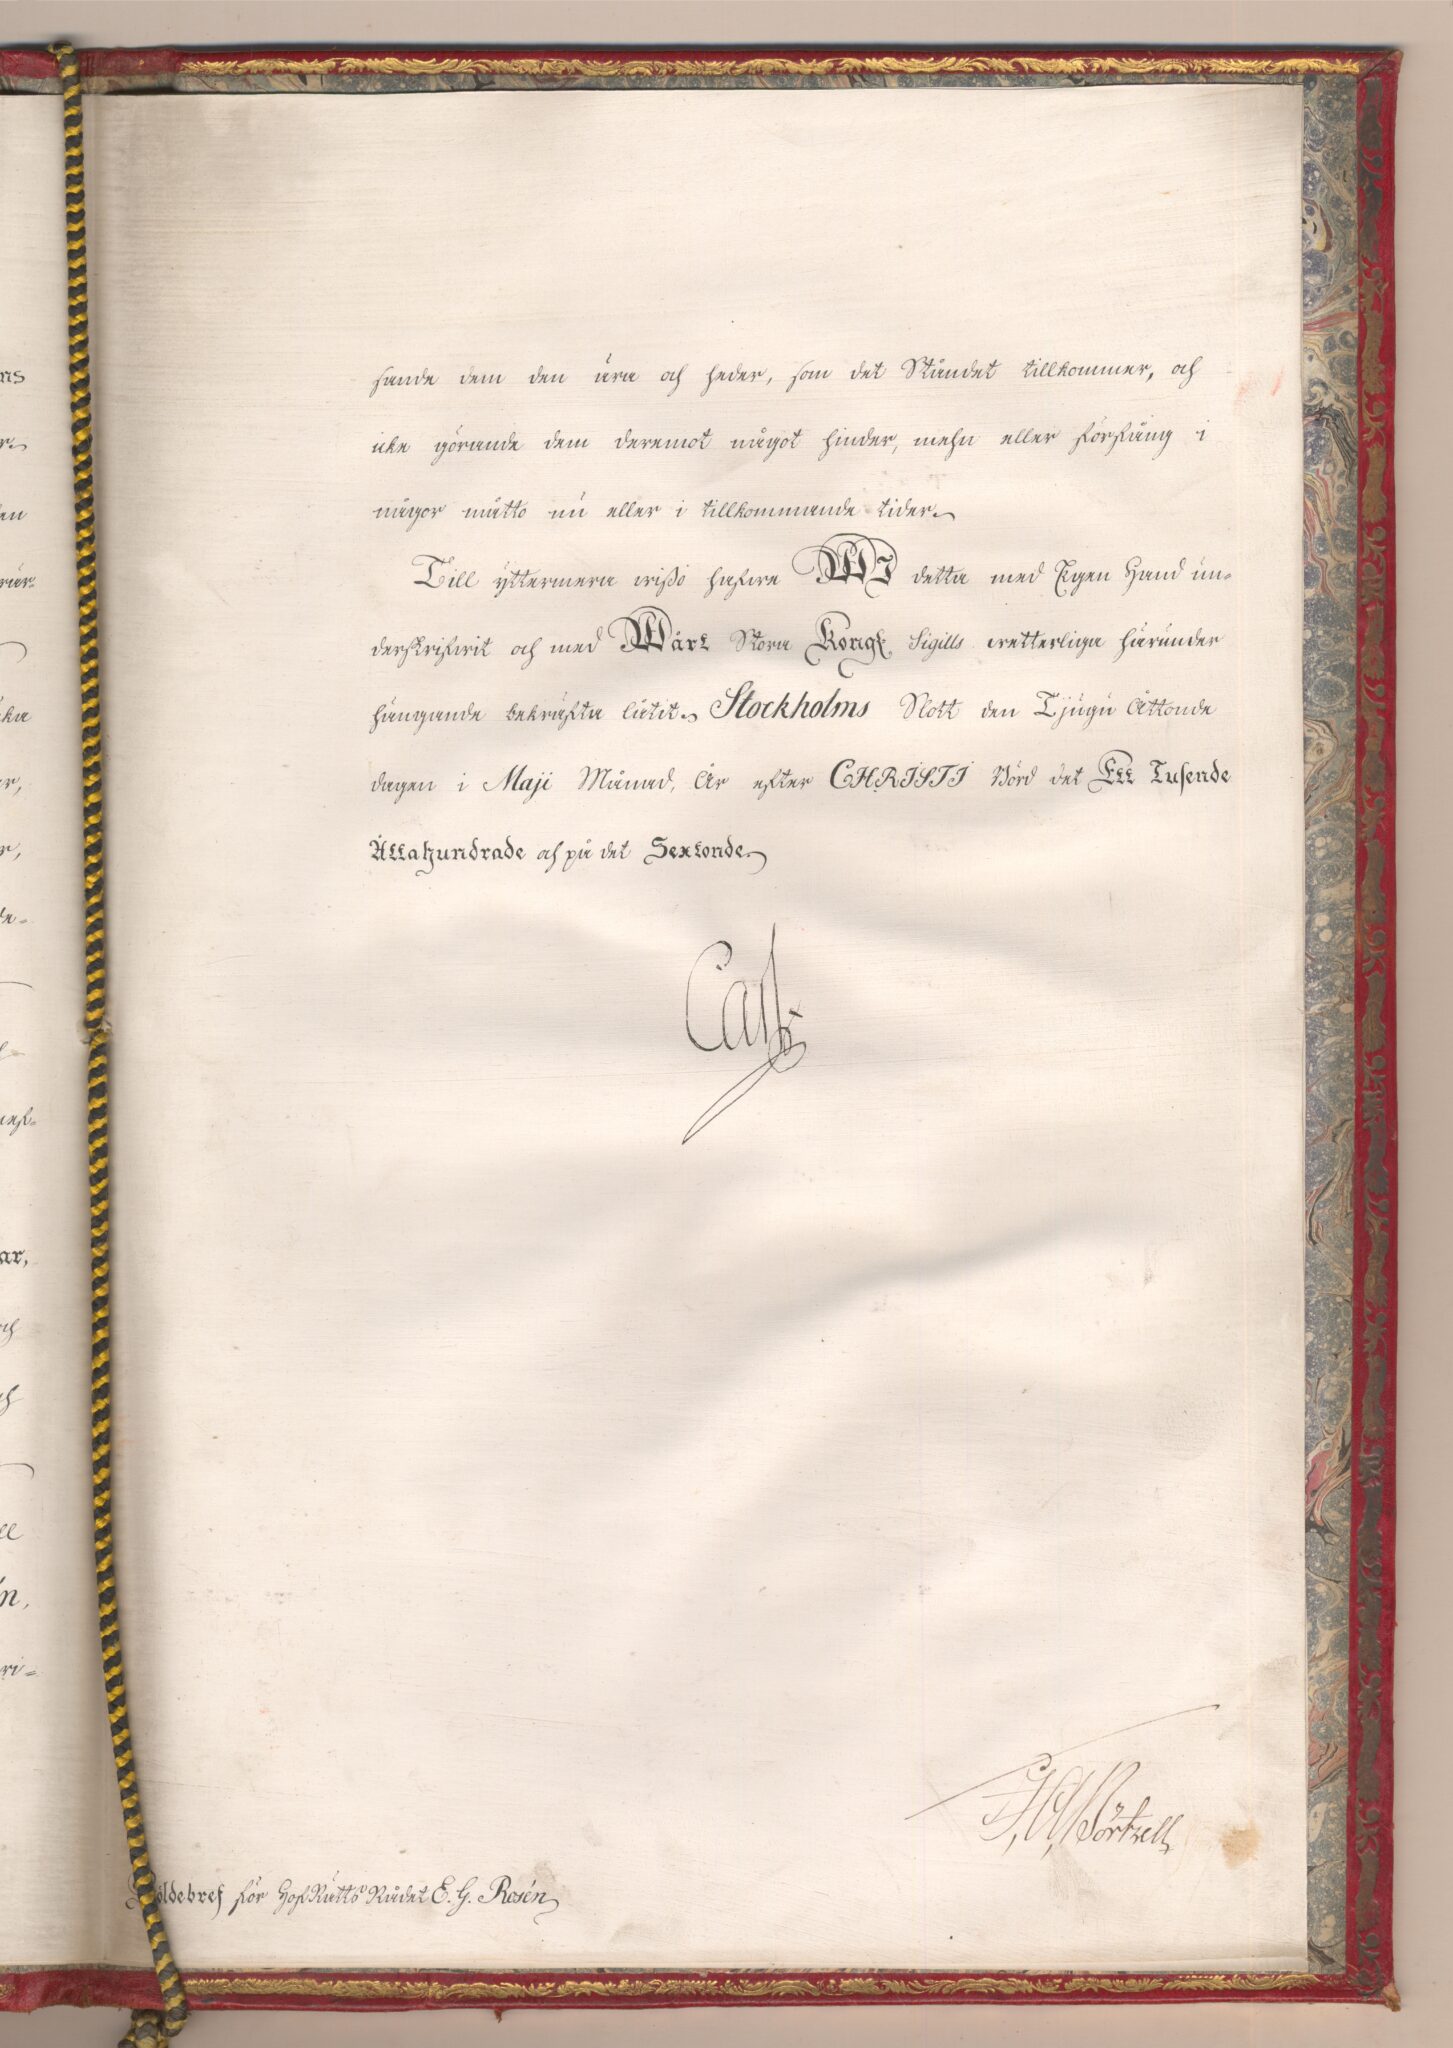 sande dem den ära och heder, som det Ståndet tillkommer, och
icke görande dem deremot något hinder, mehn eller förfång i
någor måtto nu eller i tillkommande tider.
Till yttermera wißo hafwe WI detta med Egen Hand un-
derskrifwit och med Wårt Stora Kongl. Sigills wetterliga härunder
hängande bekräfta låtit. Stockholms Slott den Tjugu Åttonde
dagen i Maji Månad, År efter CHRISTI Börd det Ett Tusende
Åttahundrade och på det Sextonde.
Carl
Sköldebref för HofRätts Rådet E. G. Rosén